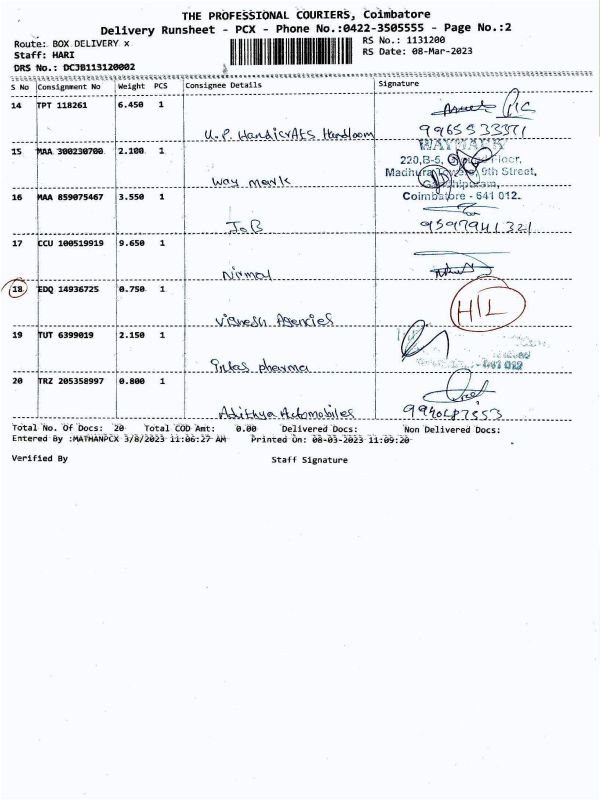 THE PROFESSIONAL COURIERS, Coimbatore
Delivery Runsheet - PCX - Phone No.:0422-3505555 - Page No.:2
Route: BOX DELIVERY x
RS No.: 1131200
Staff: HARI
RS Date: 08-Mar-2023
DRS No.: DCJB113120002
S No Consignment No Weight PCS Consignee Details Signature
14 TPT 118261 6.450 1
U.P. Handicrafts Handloom 9965533371
15 MAA 300230700 2.100 1
WAYMARK
220,B-5, Floor,
Madhura Towers, 9th Street,
Way mark
16 MAA 859075467 3.550 1
Coimbatore - 641 012.
JOB 9597941321
17 CCU 100519919 9.650 1
Nirmal
18 EDQ 14936725 0.750 1
H/L
Vignesh Agencies
19 TUT 6399019 2.150 1
641 012
Intas pharma
20 TRZ 205358997 0.800 1
Adithya Automobiles
Total No. Of Docs: 20 Total COD Amt: 0.00 Delivered Docs: Non Delivered Docs:
Entered By :MATHANPCX 3/8/2023 11:06:27 AM Printed On: 08-03-2023 11:09:20
Verified By Staff Signature